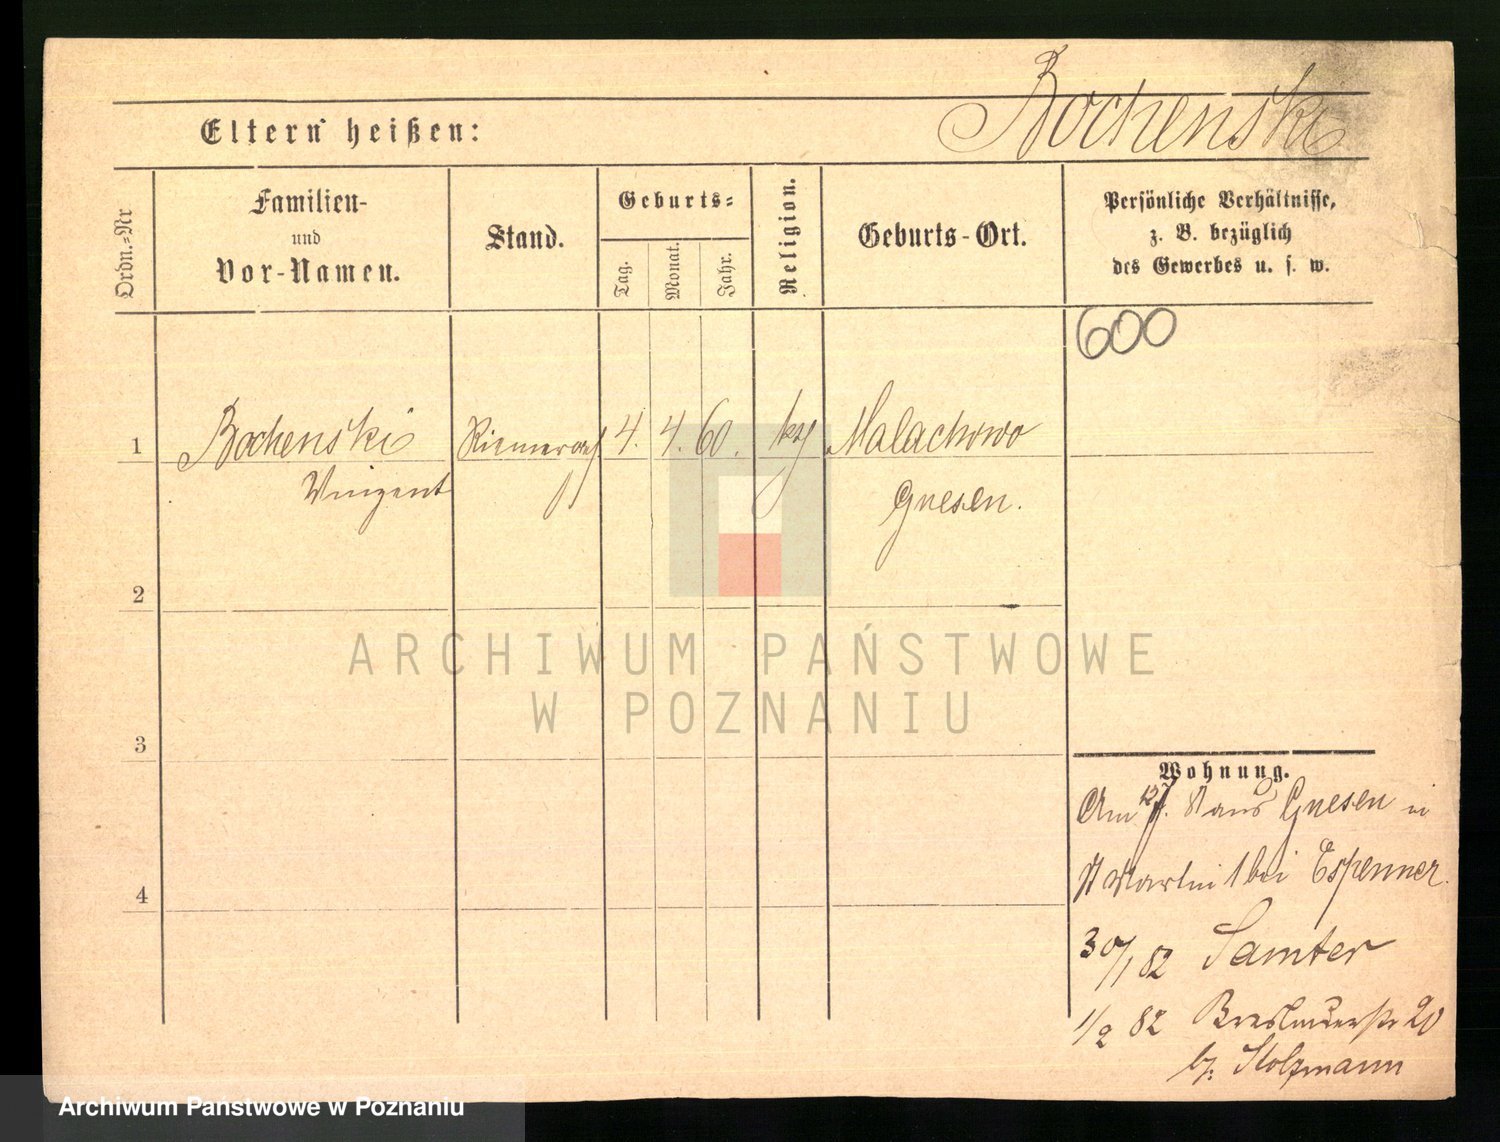 Bochenski
Eltern heißen:
Ordn.=Nr
Familien-
und
Vor-Namen.
Stand.
Geburts=
Tag.
Monat.
Jahr.
Religion.
Geburts-Ort.
Persönliche Verhältnisse,
z. B. bezüglich
des Gewerbes u. s. w.
600
1 Bochenski 4. 4. 60. Malachowo
Vinzent Gnesen.
2
3
4
Wohnung.
Am aus Gnesen in
St Martin 1 bei Espenner.
30/1 82 Samter
1/2 82 Breslauerstr 20
b. Stolzmann
ARCHIWUM PAŃSTWOWE
W POZNANIU
Archiwum Państwowe w Poznaniu